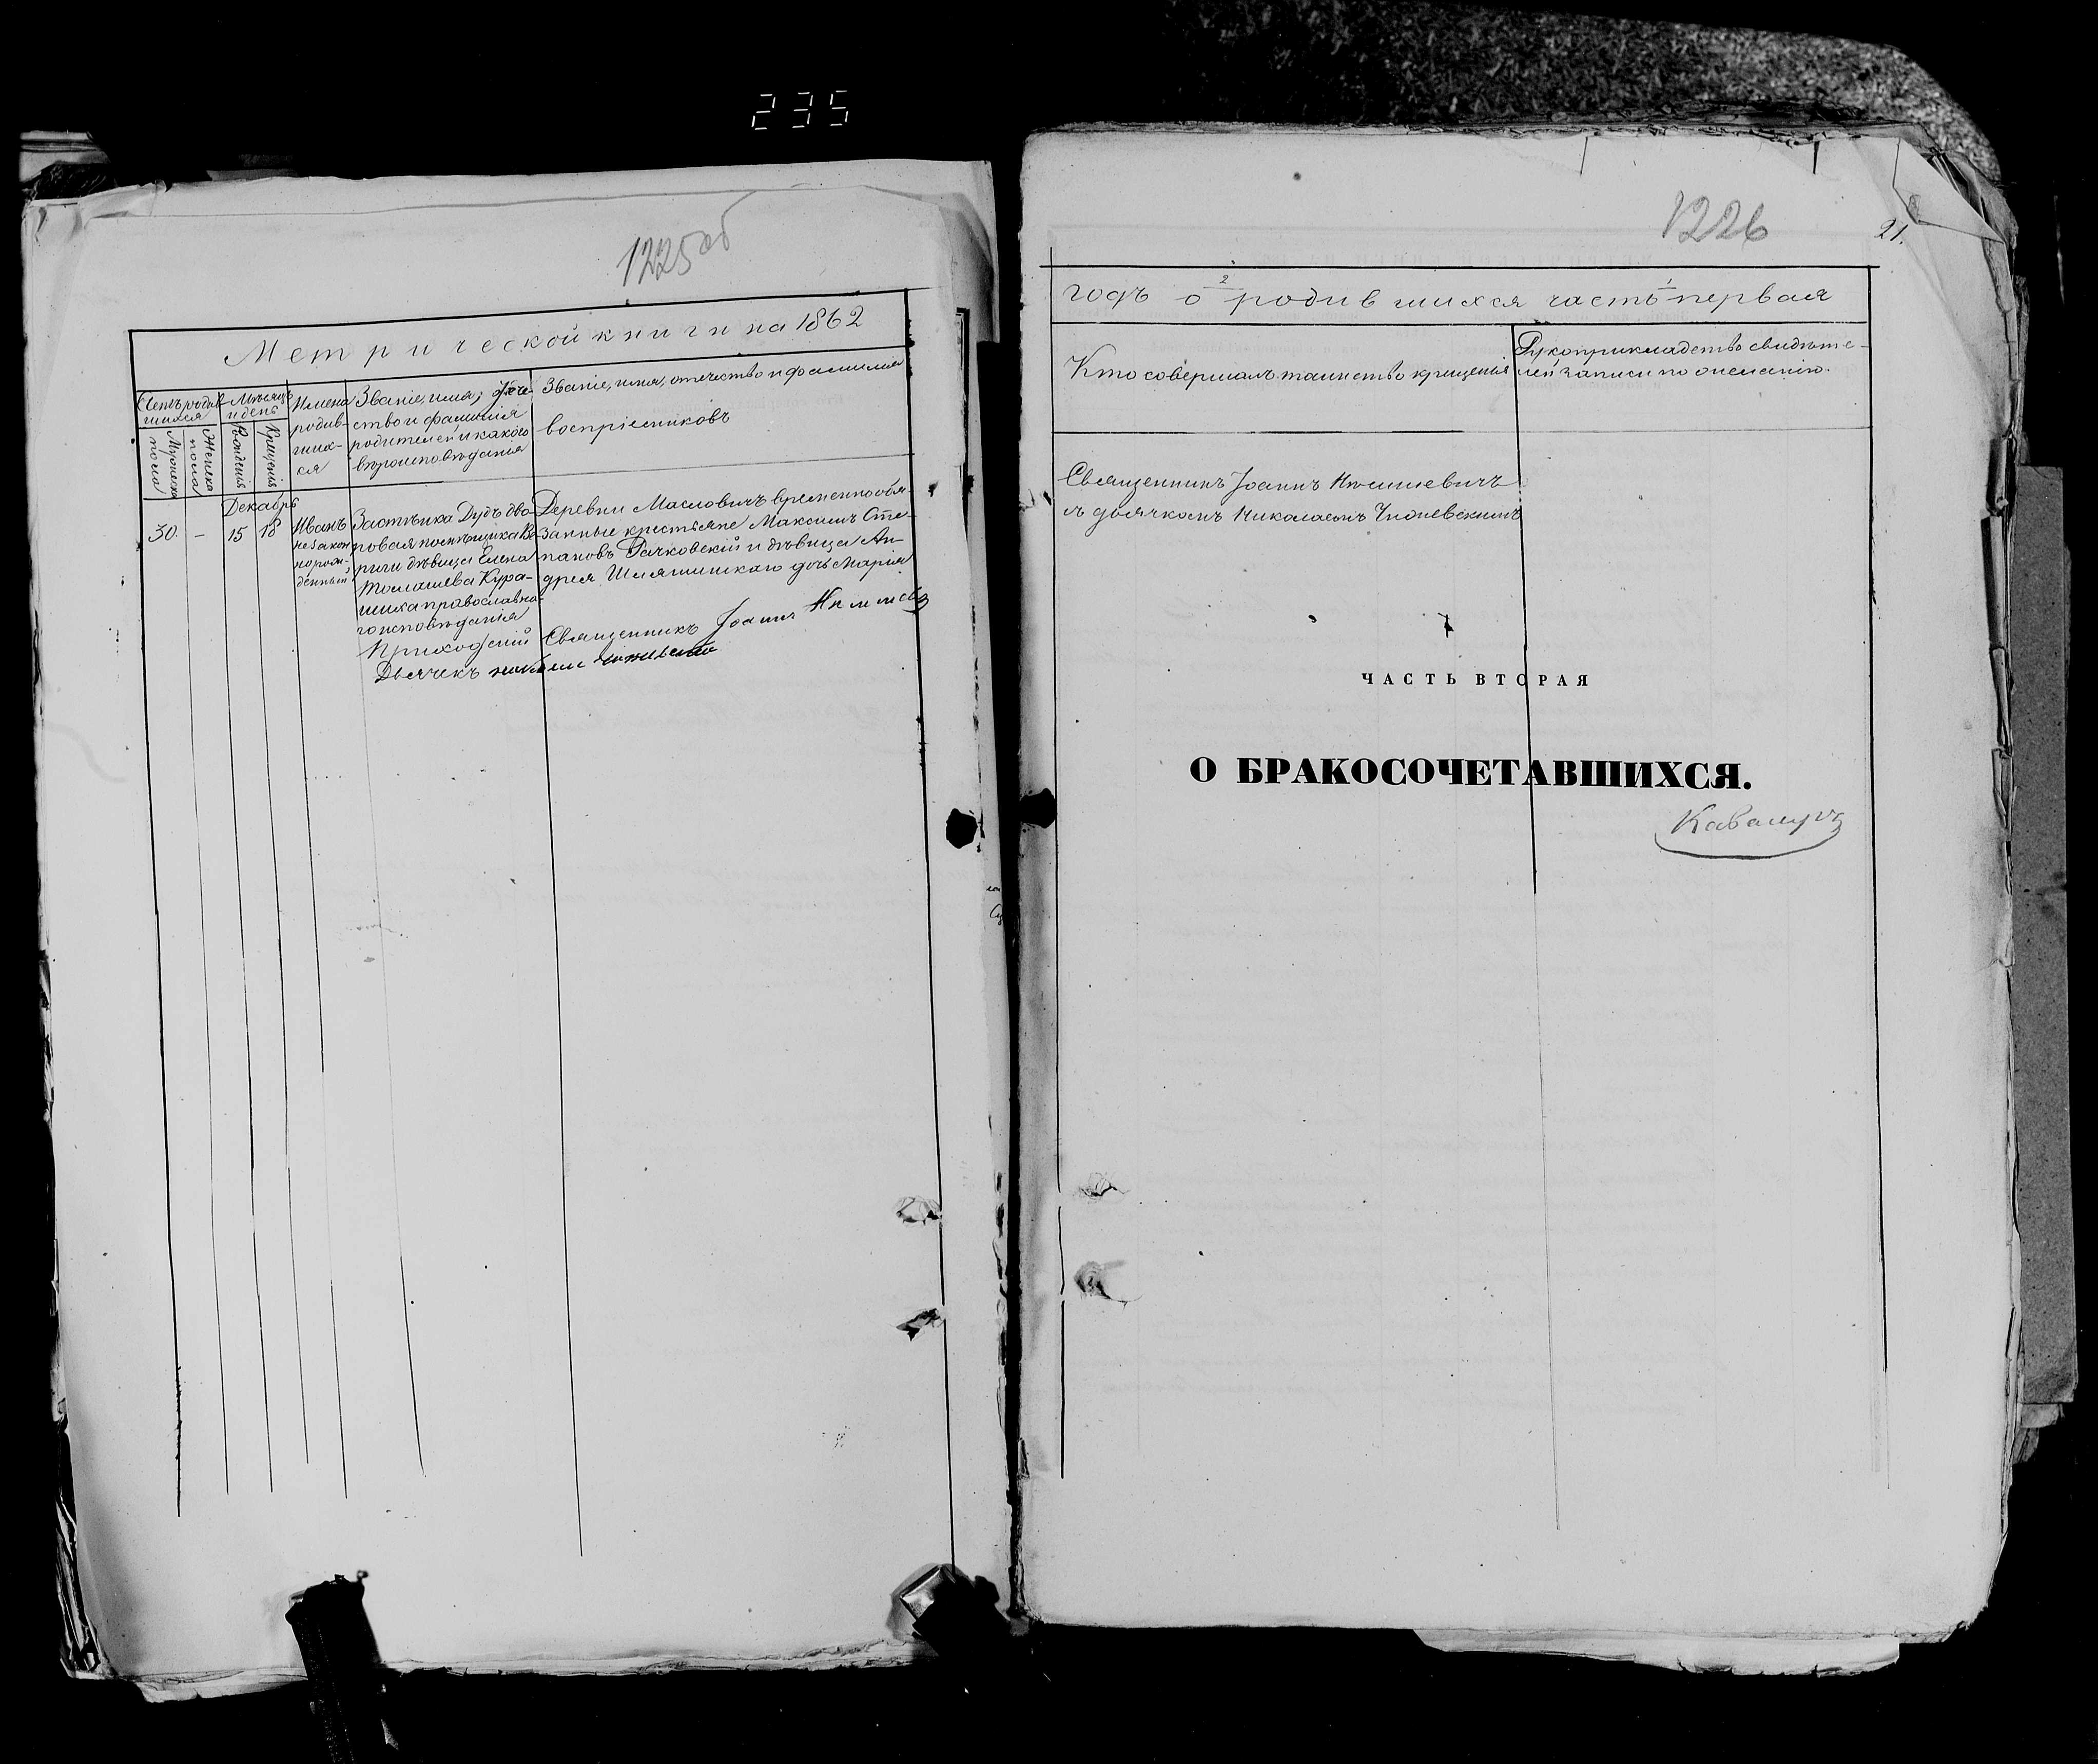 235
1225об
Метрической книги на 1862
Счетъ родив-
шихся
Мужеска
пола
Женска
пола
Мѣсяцъ
и день
Рожденія
Крещенія
Имена
родив-
ших-
ся
Званіе, имя, отче-
ство и фамилія
родителей и какого
вѣроисповѣданія
Званіе, имя, отчество и фамилія
воспріемниковъ
Декабрь
30. - 15 18
Иванъ
незакон
норож-
денный
Застѣнка Дубъ дво-
ровая помѣщика
дѣвица Елена
Томашева Кура-
православна-
го исповѣданія
Деревни Масловичъ временнообя-
занные крестьяне Максимъ Сте-
пановъ Рачковскій и дѣвица Ан-
дрея дочь Марія
Приходскій Священникъ Іоаннъ
Дьячекъ
1226
21.
2 1
годъ о родившихся часть первая
Кто совершалъ таинство крещенія
Рукоприкладство свидѣте-
лей записи по желанію.
Священникъ Іоаннъ
съ дьячкомъ Николаемъ
ЧАСТЬ ВТОРАЯ
О БРАКОСОЧЕТАВШИХСЯ.